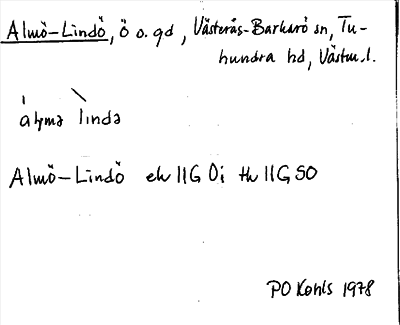 Almö-Lindö, ö o. gd, Västerås-Barkarö sn, Tu-
hundra hd, Västm.l.
Almö-Lindö ek 11G 0i tk 11G SO
PO Kohls 1978